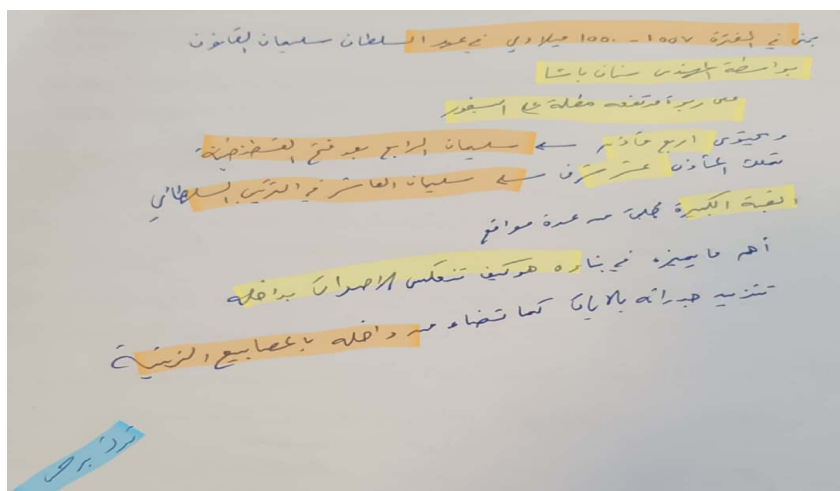 بني في الفترة ١٥٥٧ - ١٥٥٠ ميلادي في عهد السلطان سليمان القانون
بواسطة المهندس سنان باشا
على ربوة مرتفعه مطلة على البسفور
ويحتوي اربع مآذن ← سليمان الرابع بعد فتح القسطنطينية
تملك المآذن عشر شرف ← سليمان العاشر في الترتيب السلطاني
القبة الكبيرة من عدة مواقع
أهم ما يميزه في بناءه هو كيف تنعكس الاصوات بداخله
تتزين جدرانه بالايات كما تضاء من داخله بالمصابيح الزيتية